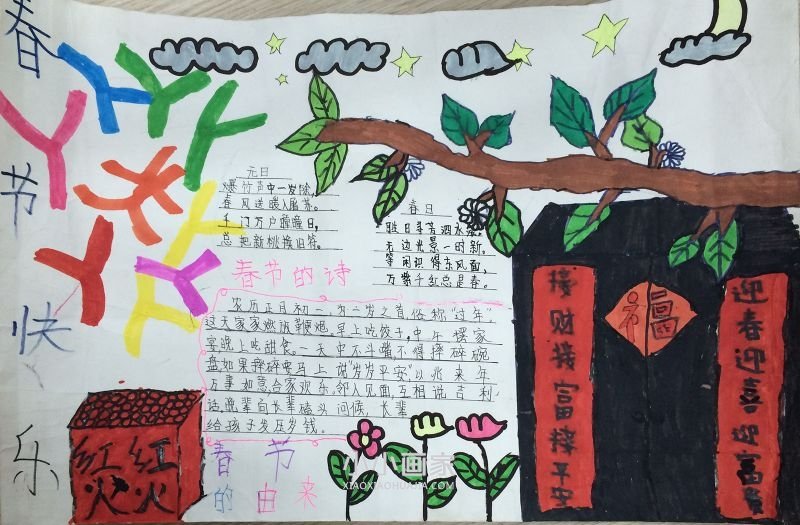 春节快乐
元日
爆竹声中一岁除,
春风送暖入屠苏。
千门万户曈曈日,
总把新桃换旧符。
春日
胜日寻芳泗水滨,
无边光景一时新。
等闲识得东风面,
万紫千红总是春。
春节的诗
农历正月初一,为一岁之首俗称“过年”
这天家家燃放鞭炮。早上吃饺子,中午摆家
宴晚上吃甜食。一天中不斗嘴不得摔碎碗
盘,如果摔碎要马上说“岁岁平安”以兆来年
万事如意,合家欢乐。邻人见面,互相说吉利
话,晚辈向长辈磕头问候,长辈
给孩子发压岁钱。
春节
的由来
红红
火火
接财接富接平安
福
迎春迎喜迎富贵
小小画家
XIAOXIAOHUAJIA.COM